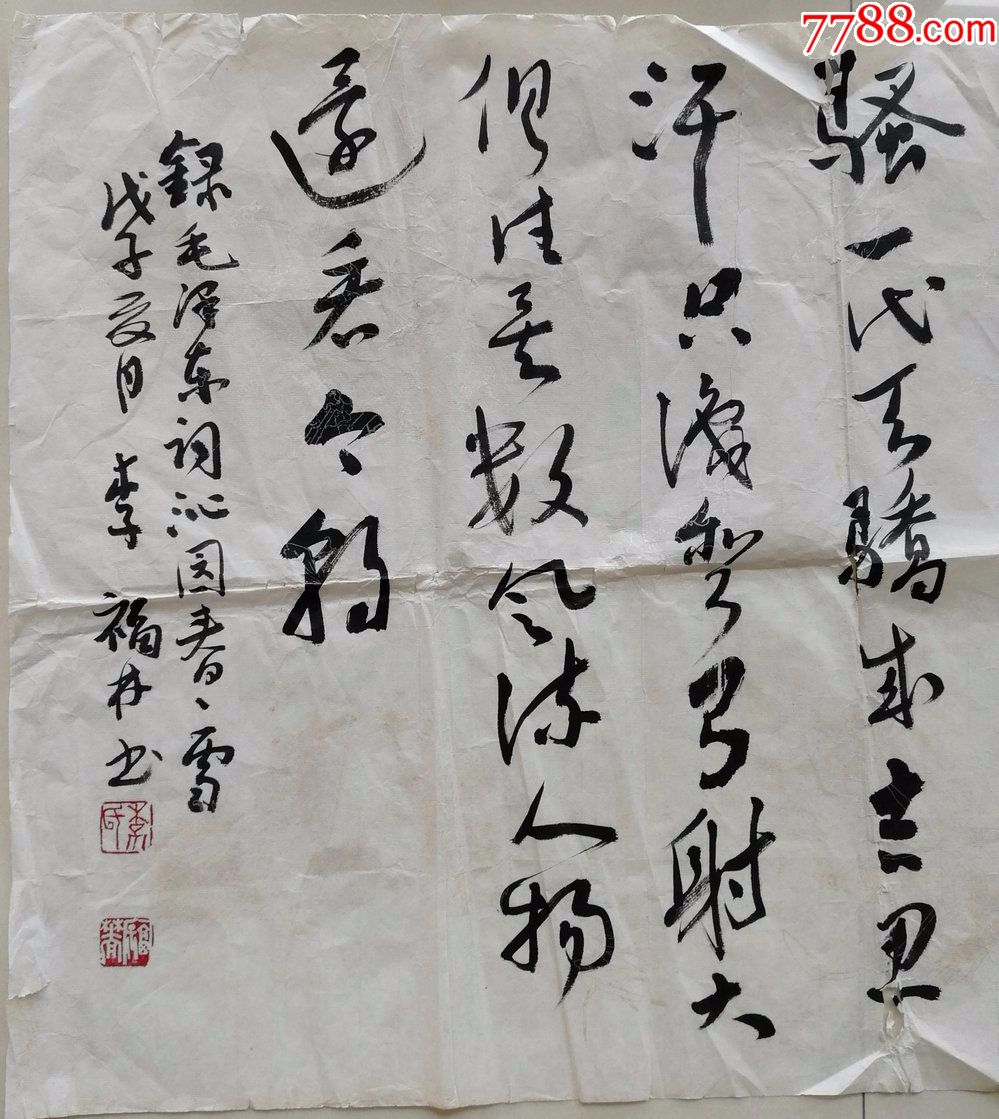 騷一代天驕成吉思
汗只識彎弓射大
俱往矣数风流人物
還看今朝
録毛泽东詞沁园春、雪
戊子夏月 李福林书
7788.com